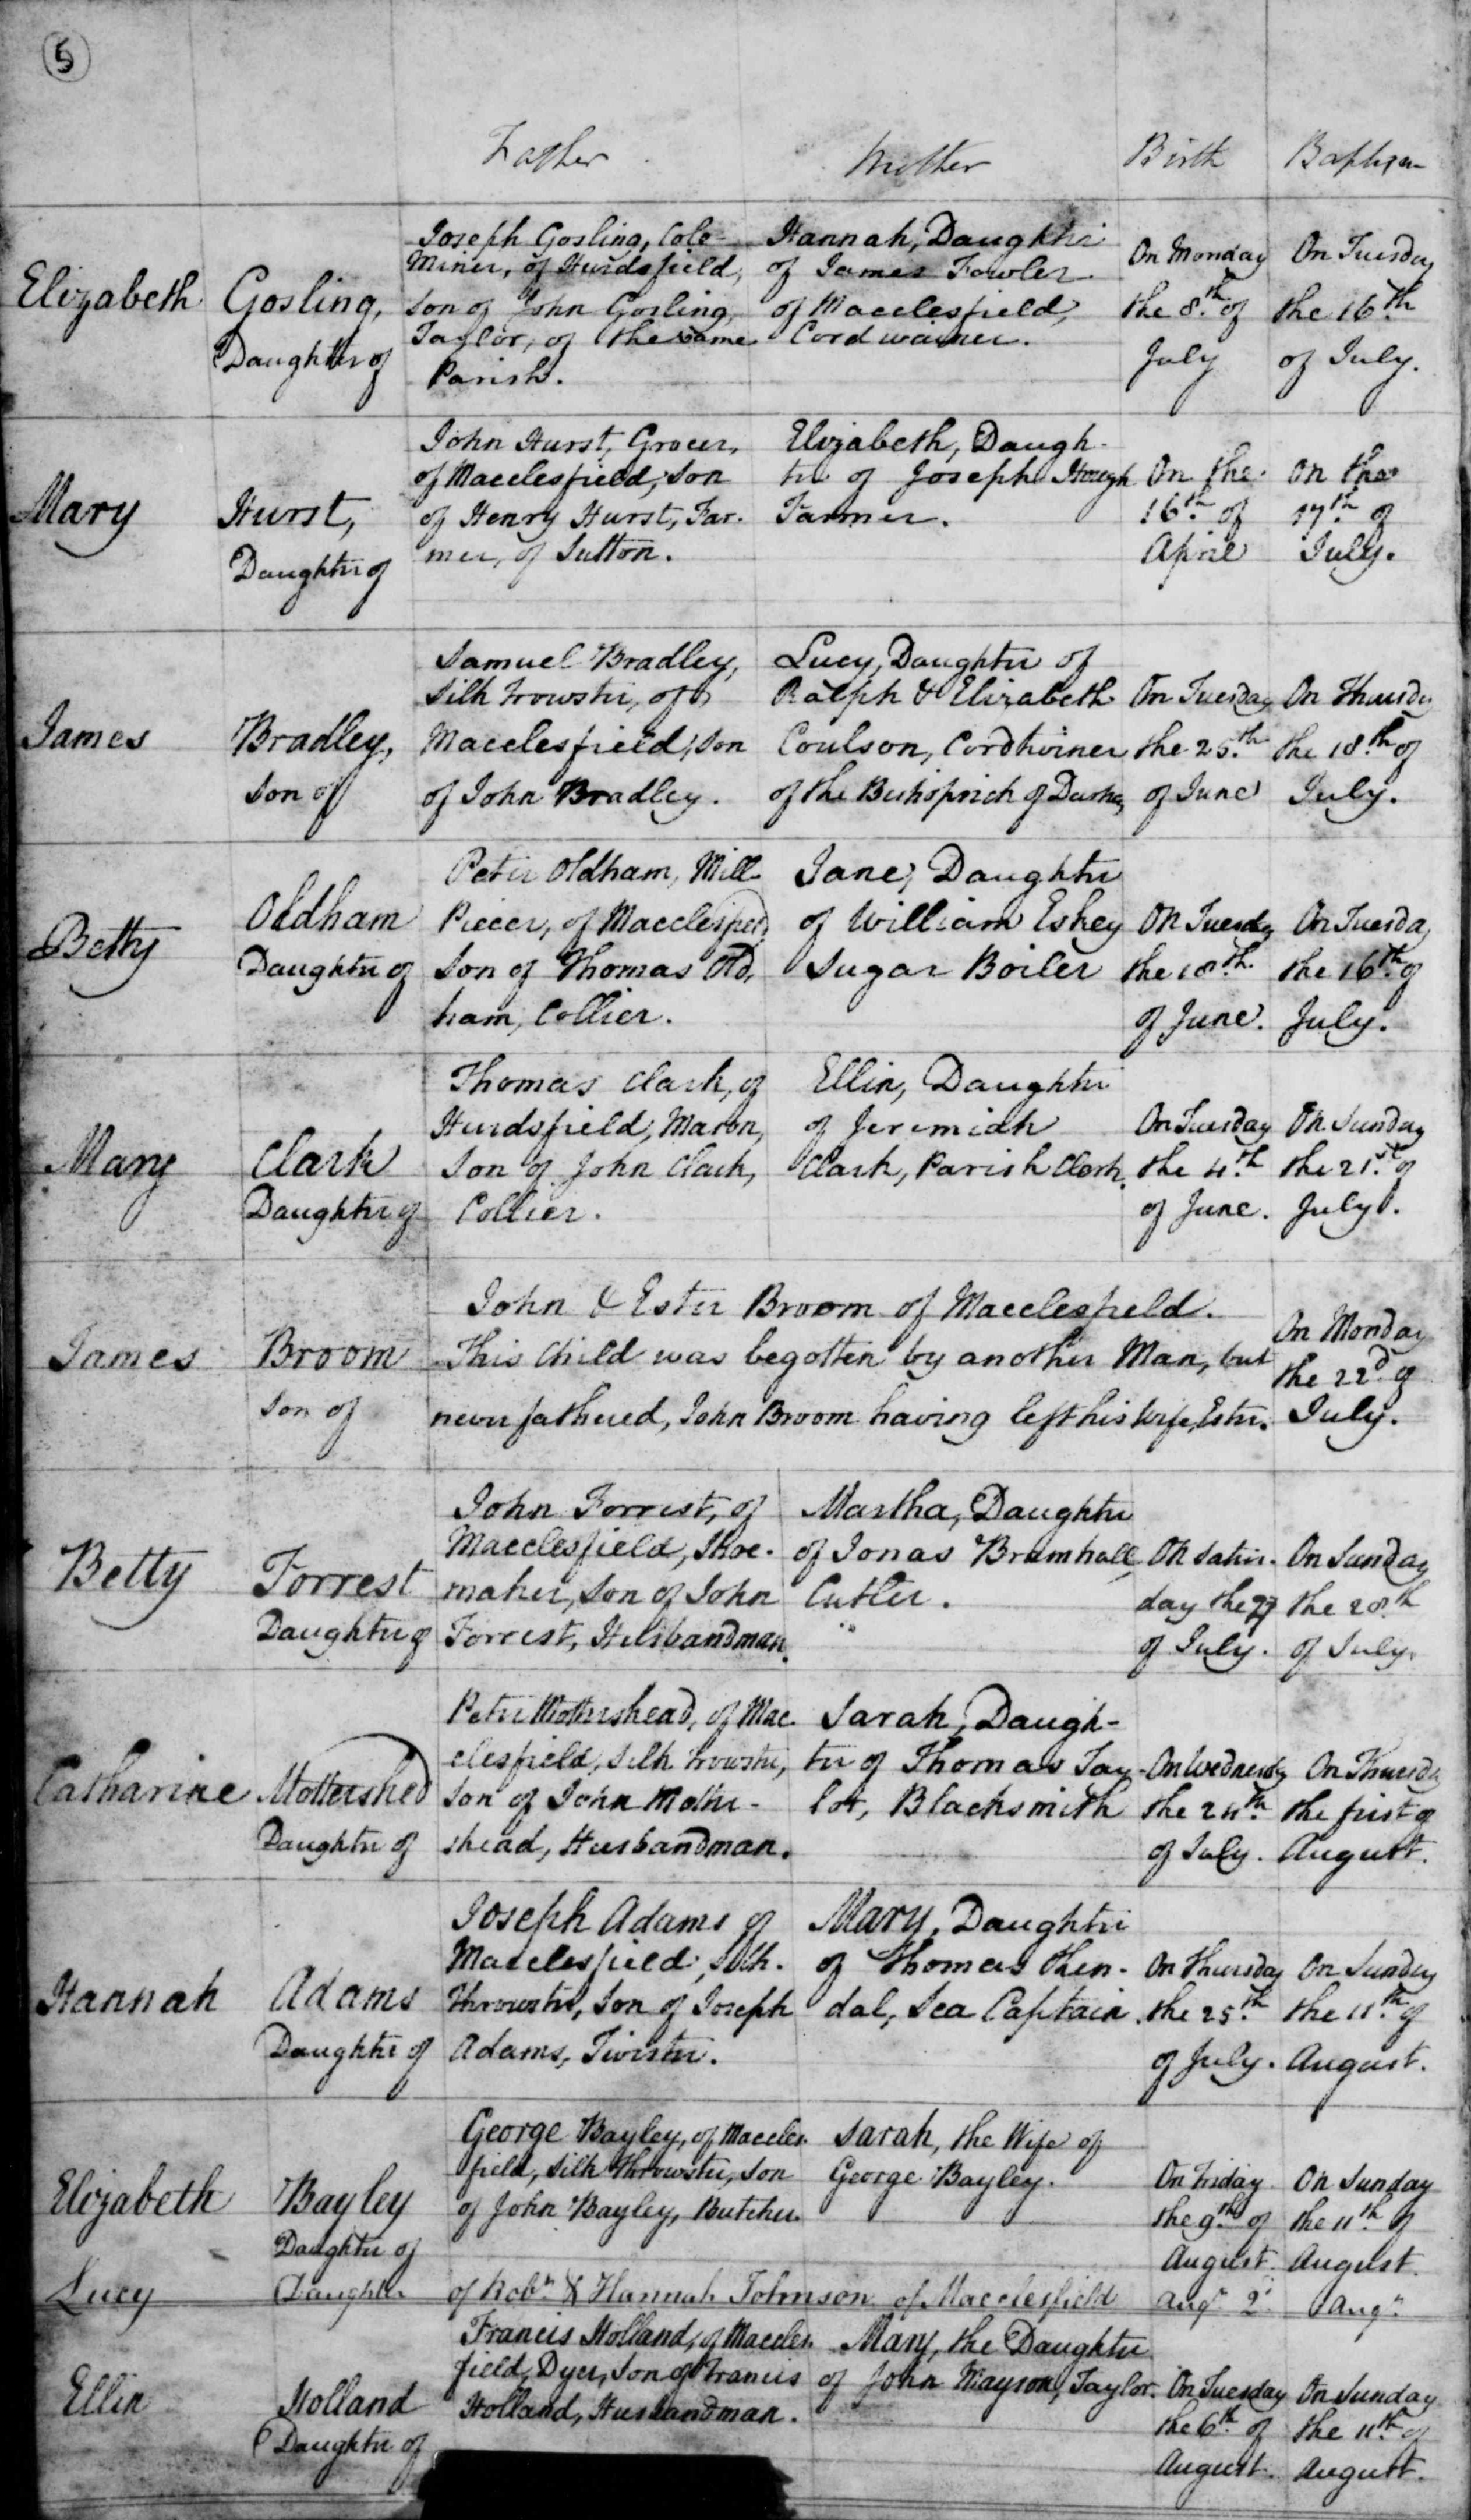 5
Father Mother Birth Baptism
Elizabeth
Gosling,
Daughter of
Joseph Gosling, Cole-
Miner, of Hurdsfield,
son of John Gosling,
Taylor, of the same
Parish.
Hannah, Daughter
of James Fowler
of Macclesfield,
Cordwainer.
On Monday
the 8.th of
July
On Tuesday
the 16.th
of July.
Mary
Hurst,
Daughter of
John Hurst, Grocer,
of Macclesfield, son
of Henry Hurst, Far-
mer, of Sutton.
Elizabeth, Daugh-
ter of Joseph Hough
Farmer.
On the
16.th of
April
On the
17.th of
July.
James
Bradley,
Son of
Samuel Bradley,
Silk Trowster, of
Macclesfield, son
of John Bradley.
Lucy, Daughter of
Ralph & Elizabeth
Coulson, Cordwiner
of the Bishoprich of
On Tuesday
the 25.th
of June
On Thursday
the 18.th of
July.
Betty
Oldham
Daughter of
Peter Oldham, Mill-
Piecer, of Macclesfield
Son of Thomas Old-
ham, Collier.
Jane, Daughter
of William Eskey
Sugar Boiler
On Tuesday
the 18.th
of June.
On Tuesday
the 16.th of
July.
Mary
Clark
Daughter of
Thomas Clark, of
Hurdsfield, Mason,
Son of John Clark,
Collier.
Ellin, Daughter
of Jeremiah
Clark, Parish Clerk.
On Tuesday
the 4.th
of June.
On Sunday
the 21.st of
July.
James
Broom
Son of
John & Ester Broom of Macclesfield.
This Child was begotten by another Man, but
never fathered, John Broom having left his Wife, Ester.
On Monday
the 22.d of
July.
Betty
Forrest
Daughter of
John Forrest, of
Macclesfield, Shoe-
maker, Son of John
Forrest, Husbandman.
Martha, Daughter
of Jonas Bramhall,
Cutler.
On Satur-
day the 27
of July.
On Sunday
the 28.th
of July.
Catharine
Mottershed
Daughter of
Peter Mottershead, of Mac-
clesfield, Silk Trowster,
Son of John Motter-
shead, Husbandman.
Sarah, Daugh-
ter of Thomas Tay-
lor, Blacksmith
On Wednesday
the 24.th
of July.
On Thursday
the first of
August.
Hannah
Adams
Daughter of
Joseph Adams of
Macclesfield, Silk-
Throwster, Son of Joseph
Adams, Twister.
Mary, Daughter
of Thomas
Sea Captain.
On Thursday
the 25.th
of July.
On Sunday
the 11.th of
August.
Elizabeth
Bayley
Daughter of
George Bayley, of Maccles-
field, Silk Throwster, Son
of John Bayley, Butcher.
Sarah, the Wife of
George Bayley.
On Friday
the 9.th of
August.
On Sunday
the 11.th of
August.
Lucy Daughter of Robt. & Hannah Johnson of Macclesfield Augt. 2 Augt.
Ellin
Holland
Daughter of
Francis Holland, of Maccles-
field, Dyer, Son of Francis
Holland, Husbandman.
Mary, the Daughter
of John Mayson, Taylor.
On Tuesday
the 6.th of
August.
On Sunday
the 11.th of
August.